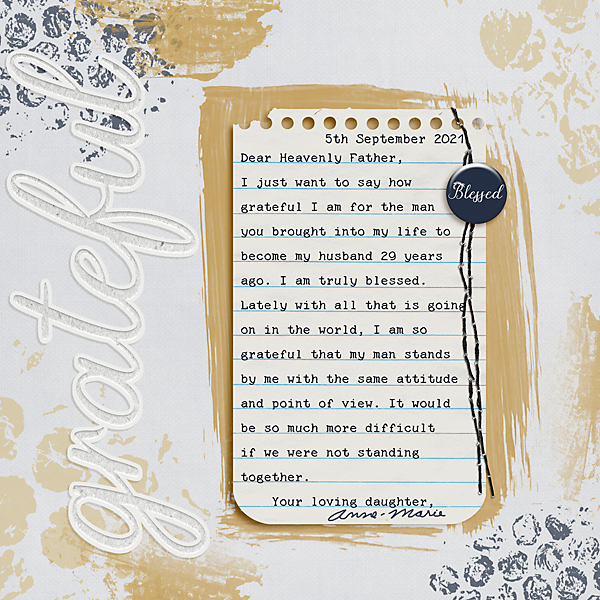 grateful
5th September 2021
Dear Heavenly Father,
Blessed
I just want to say how
grateful I am for the man
you brought into my life to
become my husband 29 years
ago. I am truly blessed.
Lately with all that is going
on in the world, I am so
grateful that my man stands
by me with the same attitude
and point of view. It would
be so much more difficult
if we were not standing
together.
Your loving daughter,
Anna-Marie